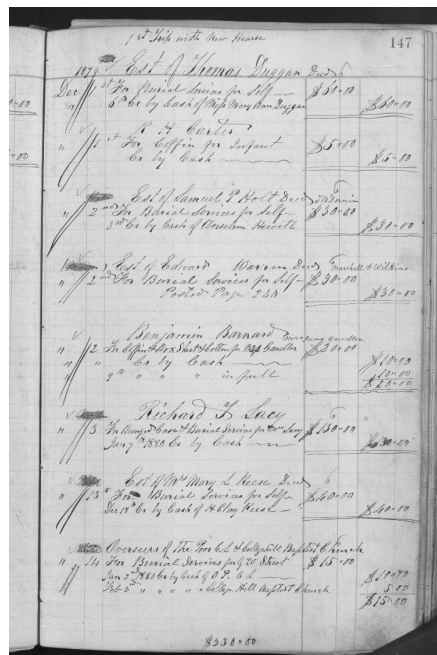 1st Trip with New Hearse
147
1879 Est of Thomas Duggan Decd
Dec 1st For Burial Services for Self $60=00
6th Cr by Cash of Miss Mary Ann Duggan $60=00
R H Carter
" 1st For Coffin for Infant $5=00
Cr by Cash $5=00
Est of Samuel P Holt Decd
" 2nd For Burial Services for Self $30=00
3rd Cr by Cash of Hewitt $30=00
Est of Edward Warren Decd Marshall & Wilkins
" 2nd For Burial Services for Self $30=00
Posted Page 244 $30=00
Benjamin Barnard
" 12 For Coffin & Box Shirt & Cotton for Chandler $20=00
" " Cr by Cash $10=00
" 9th " " " in full 10=00
$20=00
Richard F Lacy
" 13 For Case & Burial Services for Mrs Lacy $130=00
Jan 7th 1880 Cr by Cash $130=00
Est of Mrs Mary L Reese Decd
" 13th For Burial Services for Self $40=00
Dec 18th Cr by Cash of H Clay Reese $40=00
Overseers of the Poor & College Hill Baptist Church
" 14 For Burial Services for Street $15=00
Jan 1880 Cr by Cash of O. P. $10=00
Feb 3rd " " " " College Hill Baptist Church 5=00
$15=00
$330=00